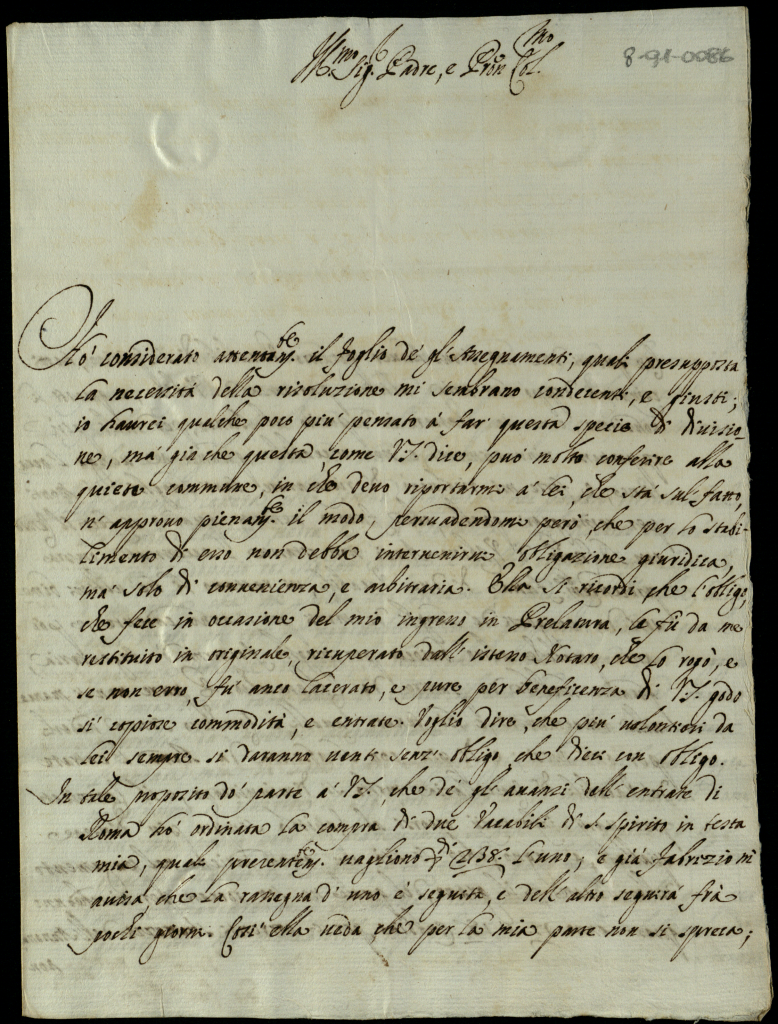 8-91-0086
Ill.mo Sig. Padre, e Pron Col.mo
Hó considerato attentam.te il foglio dé gl'Assegnamenti, quali presupposta
la necessità della risoluzione mi sembrano condecenti, e giusti;
io haurei qualche poco piú pensato á far questa specie di diuisio-
ne, má giá che questa come V.S. dice, puó molto conferire alla
quiete commune, in ché deuo riportarmi á lei, che stá sul fatto,
n'approuo pienam.te il modo, persuadendomi peró, che per lo stabi-
limento di esso non debba interuenirui obligazione giuridica,
má solo di conuenienza, e arbitraria. Ella si ricordi che l'obligo,
che fece in occasione del mio ingresso in Prelatura, le fú da me
restituito in originale, ricuperato dall'istesso Notaro, che lo rogó, e
se non erro, fú anco lacerato, e pure per beneficenza di V.S. godo
sí copiose commodità, e entrate. Voglio dire, che piú uolontieri da
lei sempre si daranno uenti senz'obligo, che dieci con obligo.
In tale proposito dó parte á V.S. che dé gl'auanzi dell'entrate di
Roma hó ordinata la compra di due Vacabili di S. Spirito in testa
mia, quali presentem.te uagliono 238. l'uno; e giá Fabrizio m'
auuisa, che la rassegna d'uno é seguita, e dell'altro seguirá frá
pochi giorni. Cosí ella ueda, che per la mia parte non si spreca;